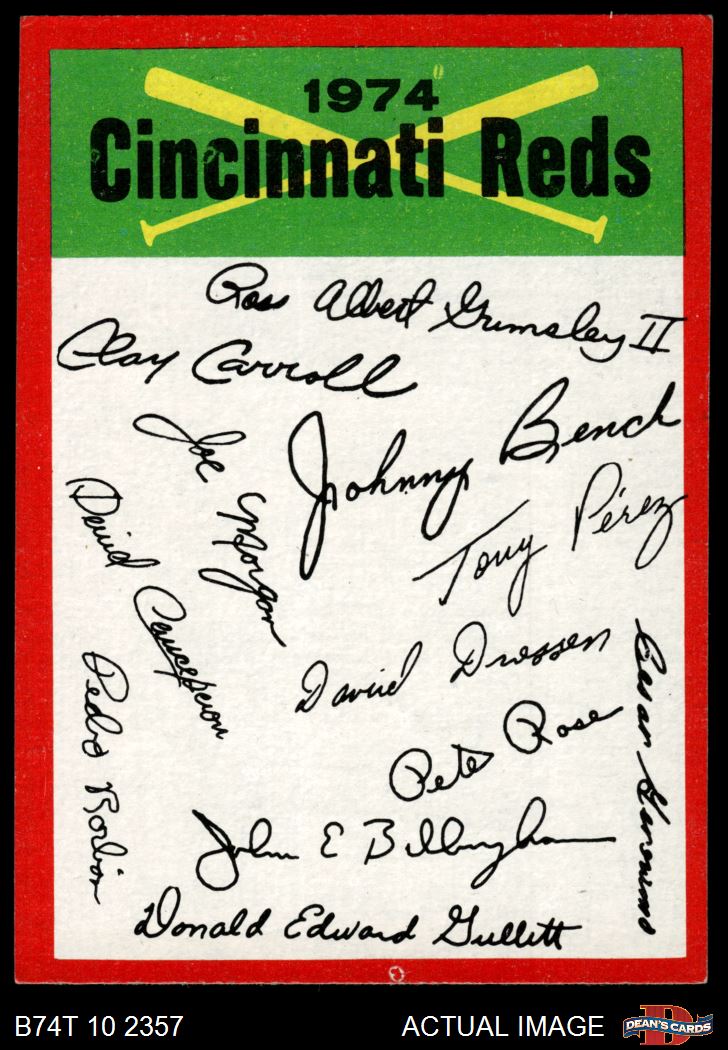 1974
Cincinnati Reds
Ross Albert Grimsley II
Clay Carroll
Johnny Bench
Joe Morgan
Tony Pérez
David Concepcion
David Driessen
Cesar Geronimo
Pedro Borbon
Pete Rose
John E Billingham
Donald Edward Gullett
B74T 10 2357
ACTUAL IMAGE
D
DEAN'S CARDS